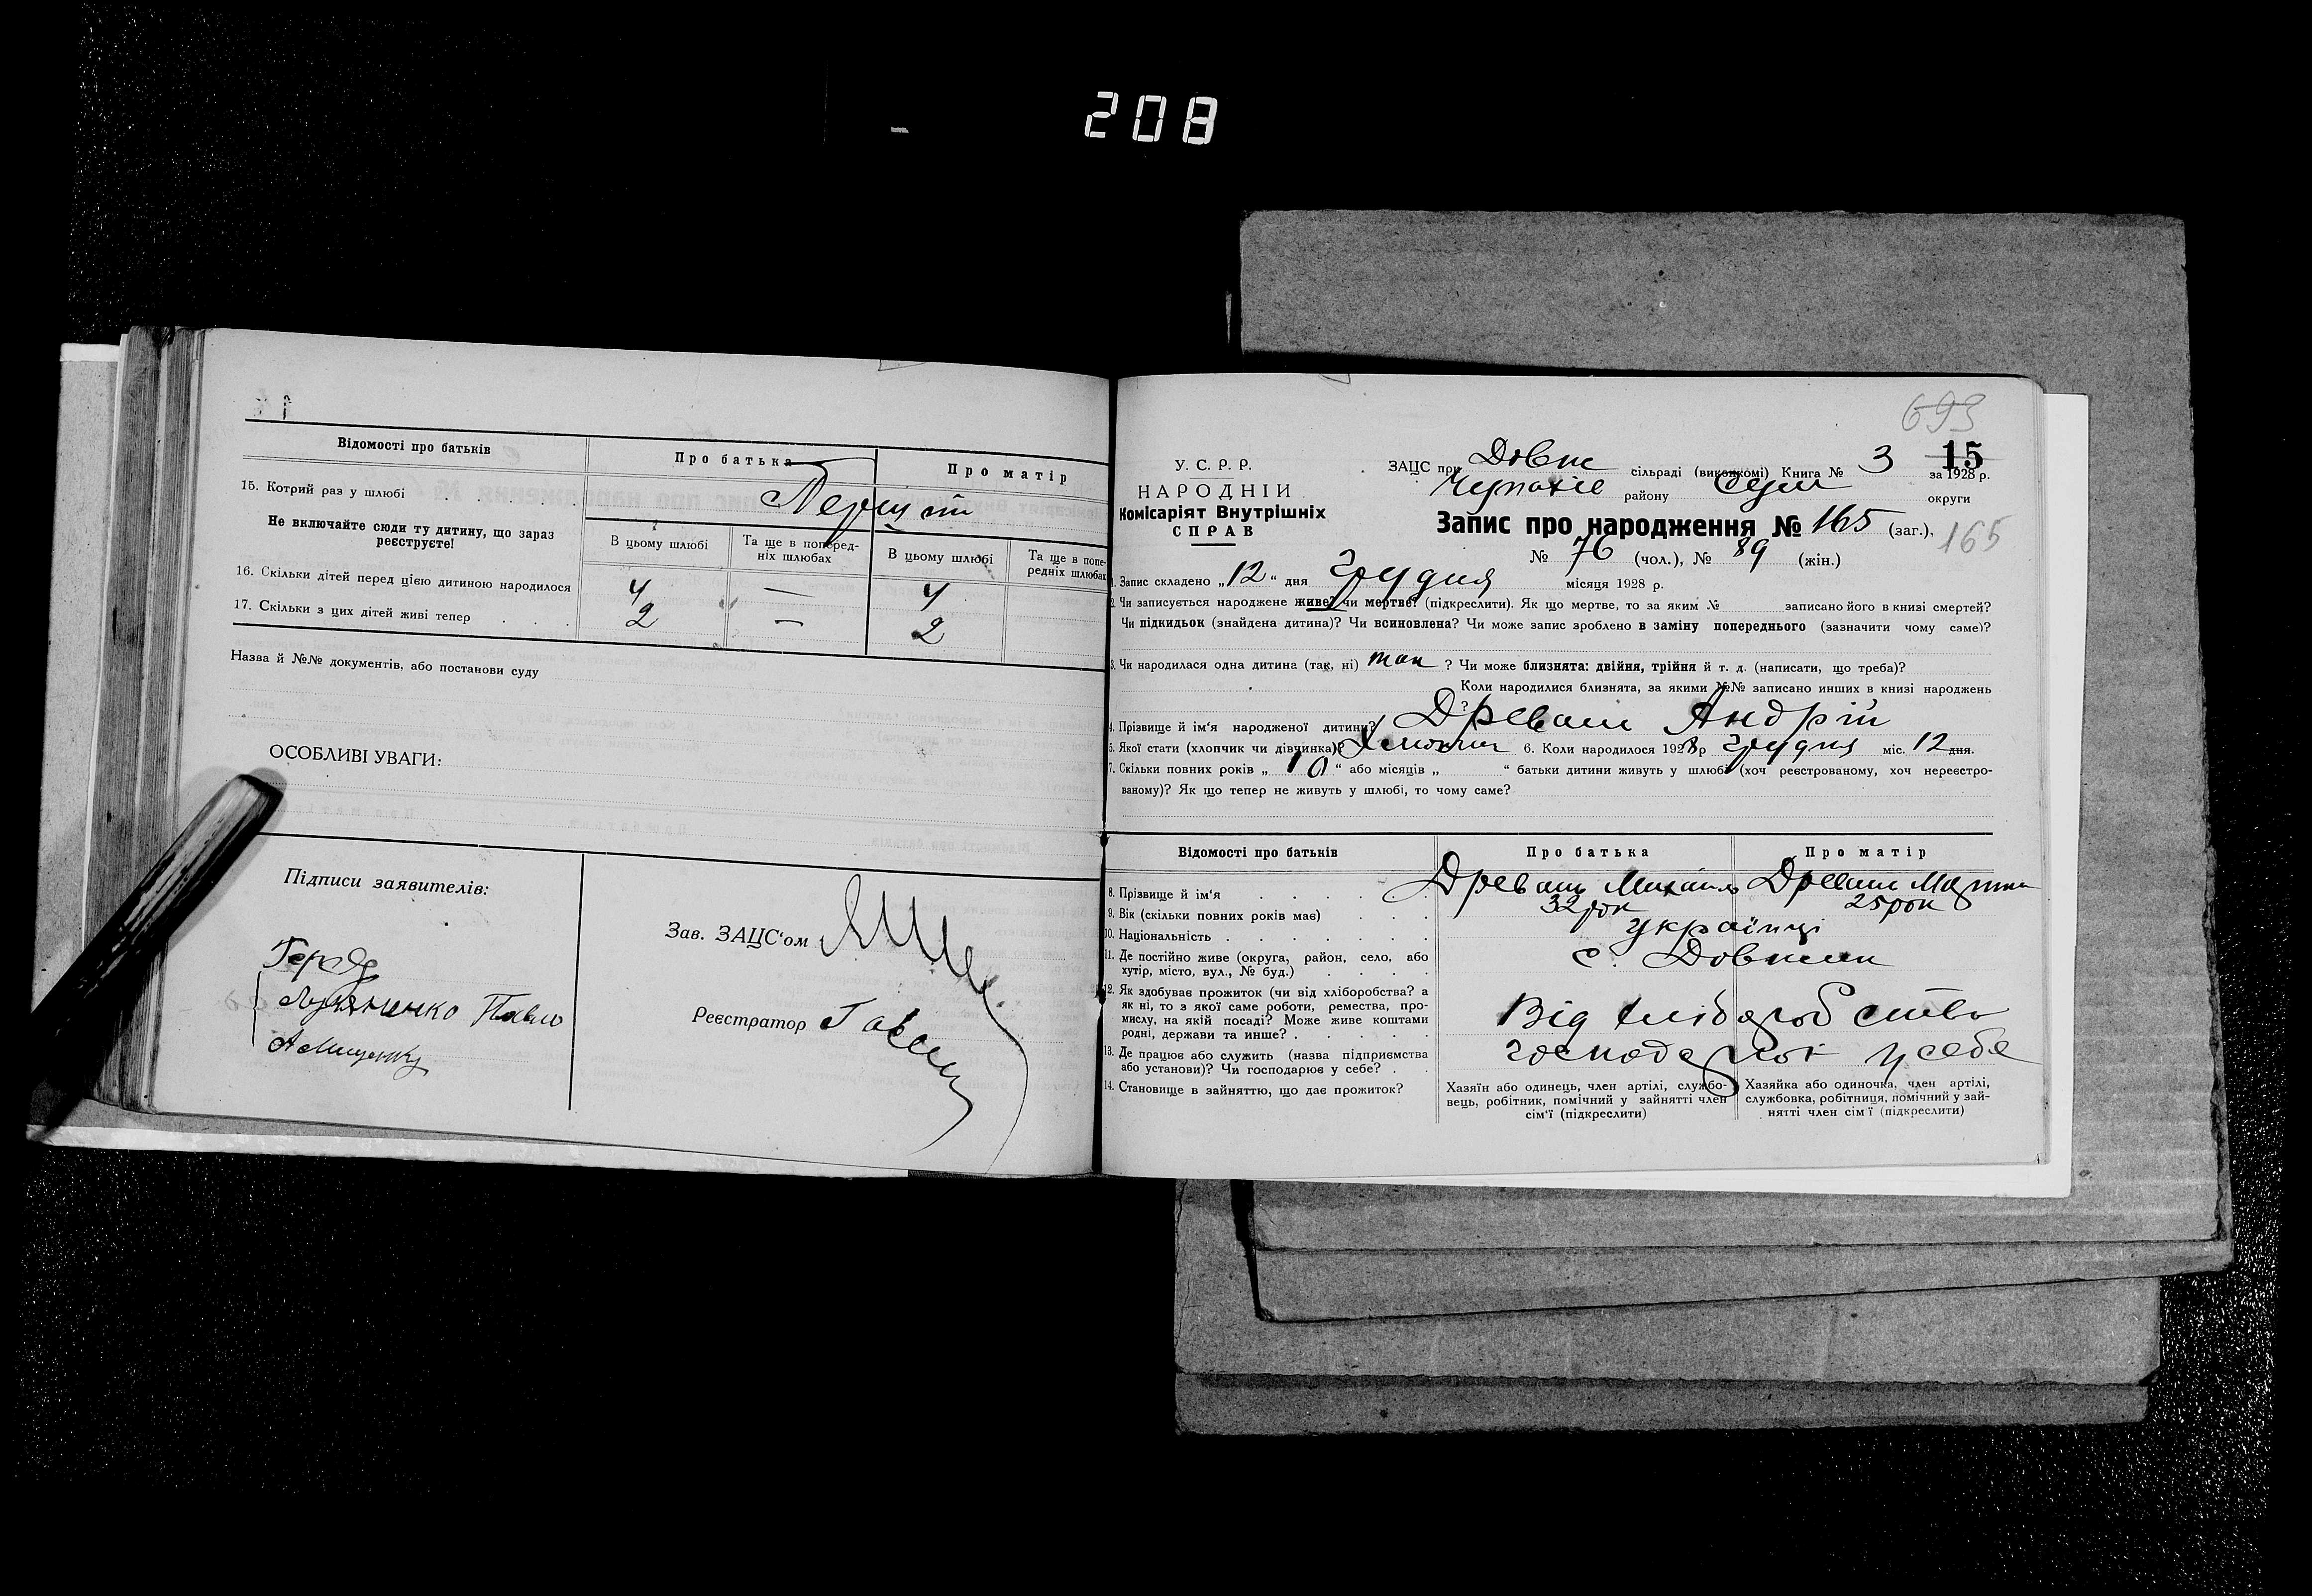 208
Відомості про батьків
Про батька
Про матір
15. Котрий раз у шлюбі
Не включайте сюди ту дитину, що зараз
реєструєте!
В цьому шлюбі
Та ще в поперед-
ніх шлюбах
В цьому шлюбі
Та ще в попе-
редніх шлюбах
16. Скільки дітей перед цією дитиною народилося
4 — 4
17. Скільки з цих дітей живі тепер
2 — 2
Назва й №№ документів, або постанови суду
ОСОБЛИВІ УВАГИ:
Підписи заявителів:
Зав. ЗАЦС'ом
Павло
Реєстратор
693
15
У. С. Р. Р.
НАРОДНІЙ
Комісаріят Внутрішніх
СПРАВ
ЗАЦС при Довж сільраді (виконкомі) Книга № 3 за 1928 р.
району Сум округи
Запис про народження № 165 (заг.), 165
№ 76 (чол.), № 89 (жін.)
1. Запис складено „12“ дня Грудня місяця 1928 р.
2. Чи записується народжене живе? чи мертве? (підкреслити). Як що мертве, то за яким № записано його в книзі смертей?
Чи підкидьок (знайдена дитина)? Чи всиновлена? Чи може запис зроблено в заміну попереднього (зазначити чому саме)?
3. Чи народилася одна дитина (так, ні) так ? Чи може близнята: двійня, трійня й т. д. (написати, що треба)?
Коли народилися близнята, за якими №№ записано инших в книзі народжень
?
4. Прізвище й ім'я народженої дитини? Андрій
5. Якої стати (хлопчик чи дівчинка)? Хлопчик 6. Коли народилося 1928 р грудня міс. 12 дня.
7. Скільки повних років „10“ або місяців „ “ батьки дитини живуть у шлюбі (хоч реєстрованому, хоч нереєстро-
ваному)? Як що тепер не живуть у шлюбі, то чому саме?
Відомості про батьків
Про батька
Про матір
8. Прізвище й ім'я
9. Вік (скільки повних років має)
32 рок 25 рок
10. Національність
українці
11. Де постійно живе (округа, район, село, або
хутір, місто, вул., № буд.)
с. Довжик
12. Як здобуває прожиток (чи від хліборобства? а
як ні, то з якої саме роботи, ремества, про-
мислу, на якій посаді? Може живе коштами
родні, держави та инше?
Від хліборобства
13. Де працює або служить (назва підприємства
або установи)? Чи господарює у себе?
у себе
14. Становище в зайняттю, що дає прожиток?
Хазяїн або одинець, член артілі, службо-
вець, робітник, помічний у зайнятті член
сім'ї (підкреслити)
Хазяйка або одиночка, член артілі,
службовка, робітниця, помічний у зай-
нятті член сім'ї (підкреслити)